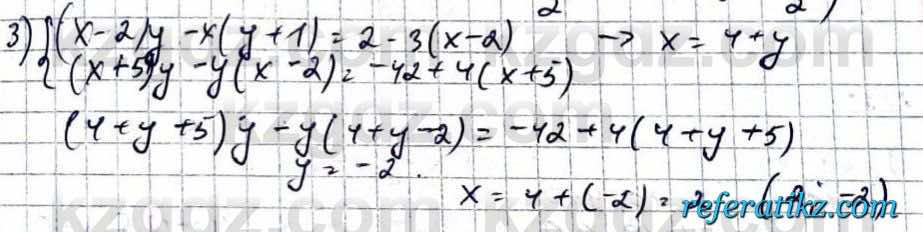 3) { (x-2)y - x(y+1) = 2 - 3(x-2) → x = 4+y
(x+5)y - y(x-2) = -42 + 4(x+5)
(4+y+5)y - y(4+y-2) = -42 + 4(4+y+5)
y = -2.
x = 4 + (-2) = 2 (2; -2)
referatikz.com